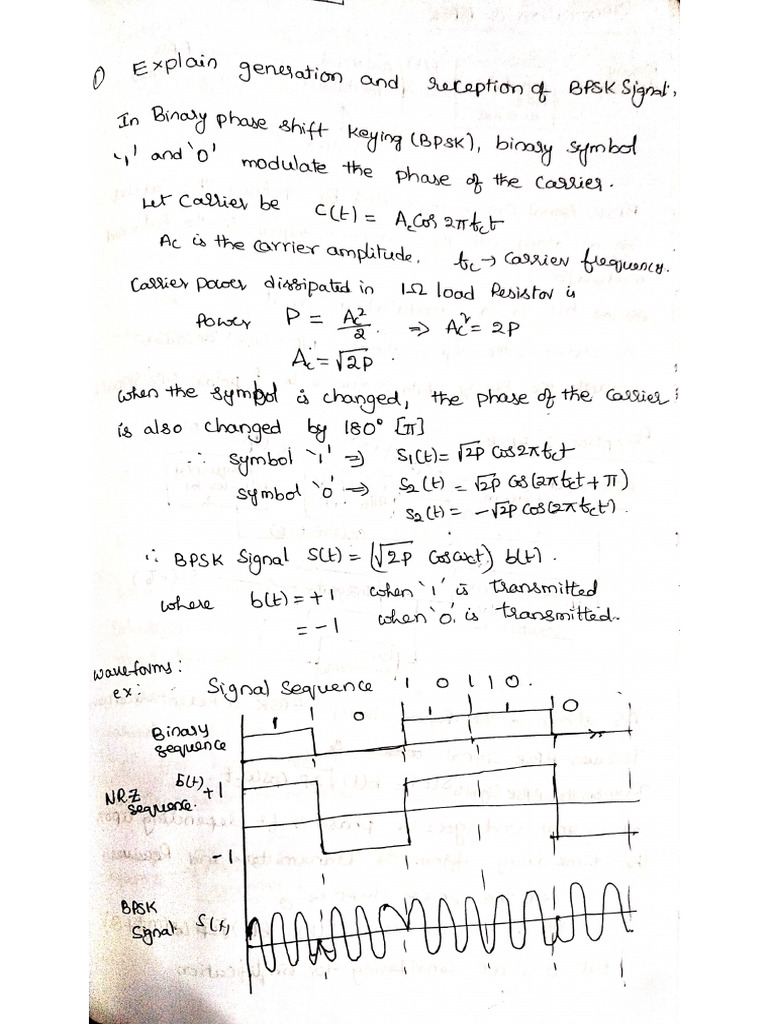 1) Explain generation and, reception of BPSK Signal.
In Binary phase shift Keying (BPSK), binary symbol
'1' and '0' modulate the phase of the carrier.
Let Carrier be C(t) = Ac Cos 2πfct
Ac is the carrier amplitude, fc → Carrier frequency.
Carrier power dissipated in 1Ω load Resistor is
Power P = Ac²/2 ⇒ Ac² = 2P
Ac = √2P .
when the symbol is changed, the phase of the carrier
is also changed by 180° [π]
∴ symbol '1' ⇒ S1(t) = √2P cos2πfct
symbol '0' ⇒ S2(t) = √2P cos(2πfct + π)
S2(t) = -√2P cos(2πfct).
∴ BPSK Signal S(t) = (√2P cosωct) b(t).
where b(t) = +1 when '1' is transmitted
= -1 when '0' is transmitted.
waveforms:
ex: Signal Sequence 1 0 1 1 0.
Binary sequence 1 0 1 1 0
NRZ sequence. b(t) +1
-1
BPSK Signal S(t)